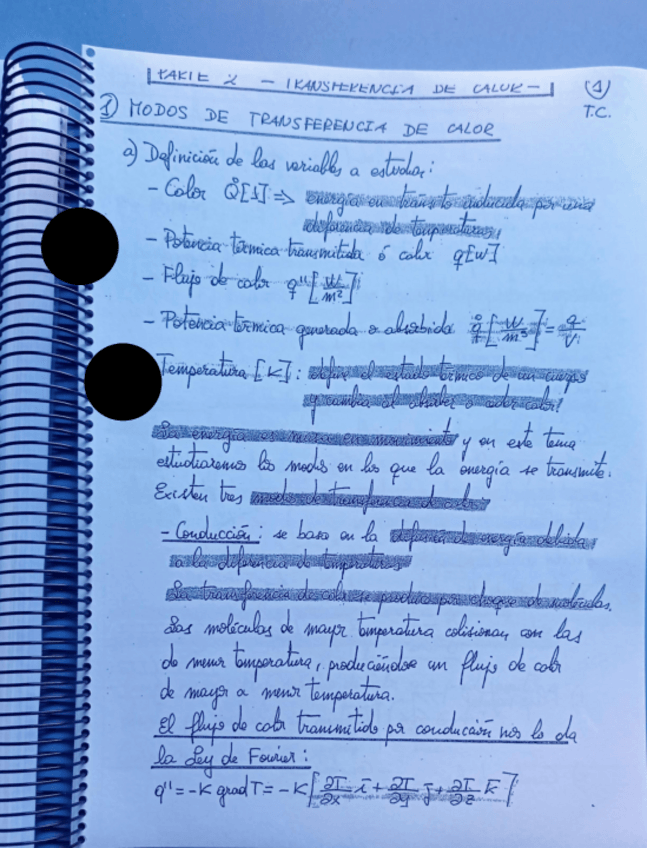 PARTE 2 - TRANSFERENCIA DE CALOR -
1
T.C.
1) MODOS DE TRANSFERENCIA DE CALOR
a) Definición de las variables a estudiar:
- Calor Q̊[J] => energía en tránsito inducida por una
diferencia de temperaturas,
- Potencia térmica transmitida ó calor q[W]
- Flujo de calor q"[W/m²]
- Potencia térmica generada o absorbida q̊[W/m³]=q/V
Temperatura [K]: define el estado térmico de un cuerpo
y cambia al absorber o ceder calor!
La energía es materia en movimiento y en este tema
estudiaremos los modos en los que la energía se transmite.
Existen tres modos de transferencia de calor:
- Conducción: se basa en la difusión de energía debida
a la diferencia de temperaturas
La transferencia de calor se produce por choque de moléculas.
Las moléculas de mayor temperatura colisionan con las
de menor temperatura, produciéndose un flujo de calor
de mayor a menor temperatura.
El flujo de calor transmitido por conducción nos lo da
la Ley de Fourier:
q" = -K grad T = -K[∂T/∂x i + ∂T/∂y j + ∂T/∂z k]